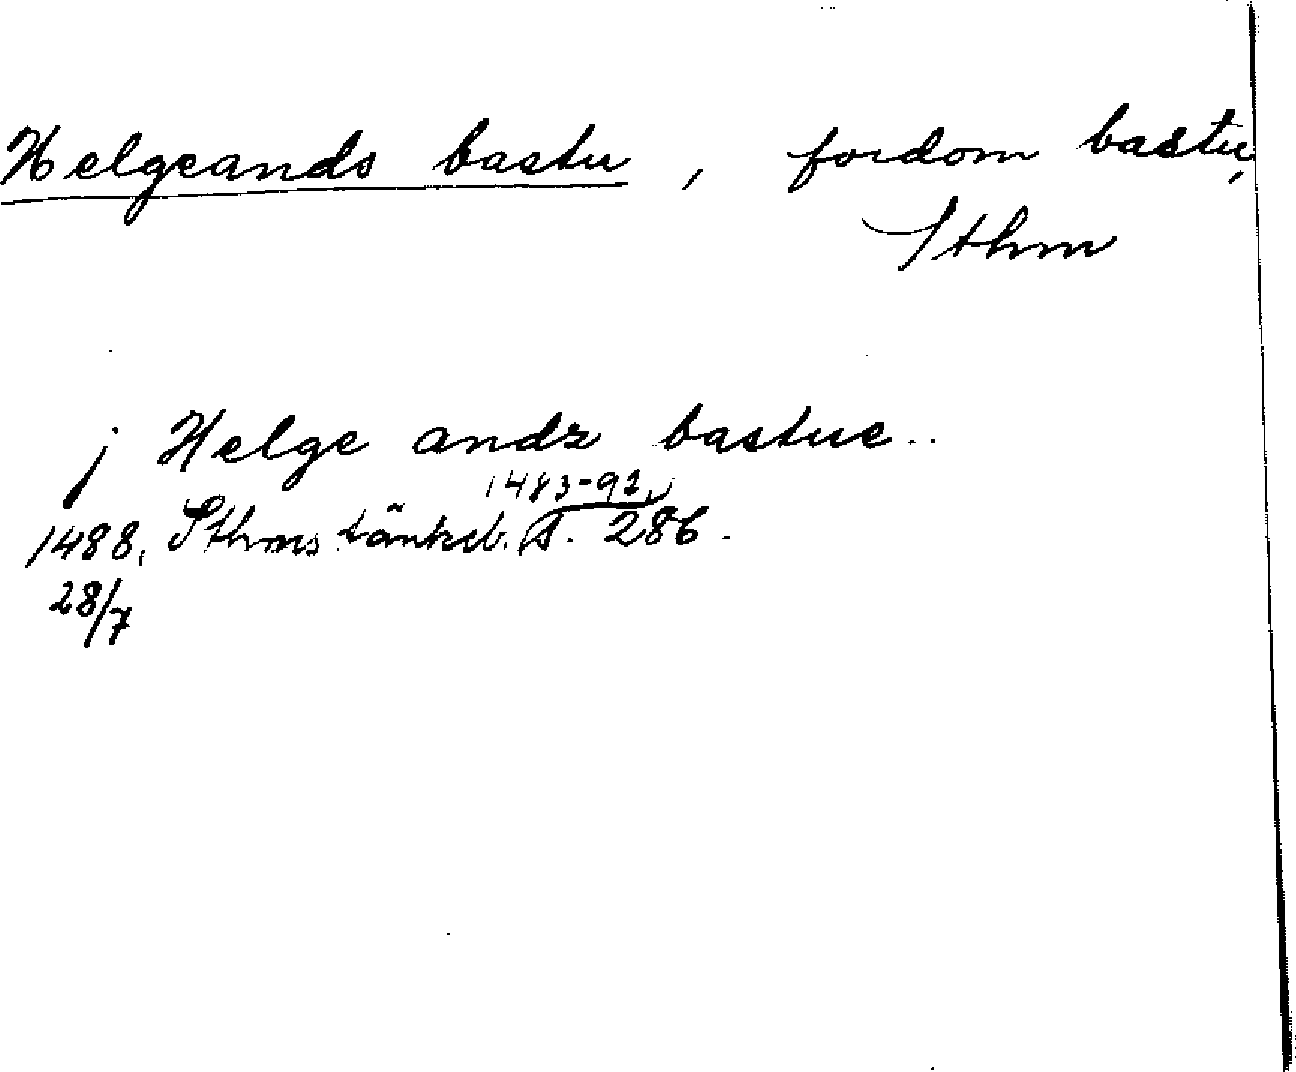 Helgeands bastu, fordom bastu,
Sthm
j Helge andz bastue..
1483-92,
1488, Sthms tänkeb. s. 286.
28/7